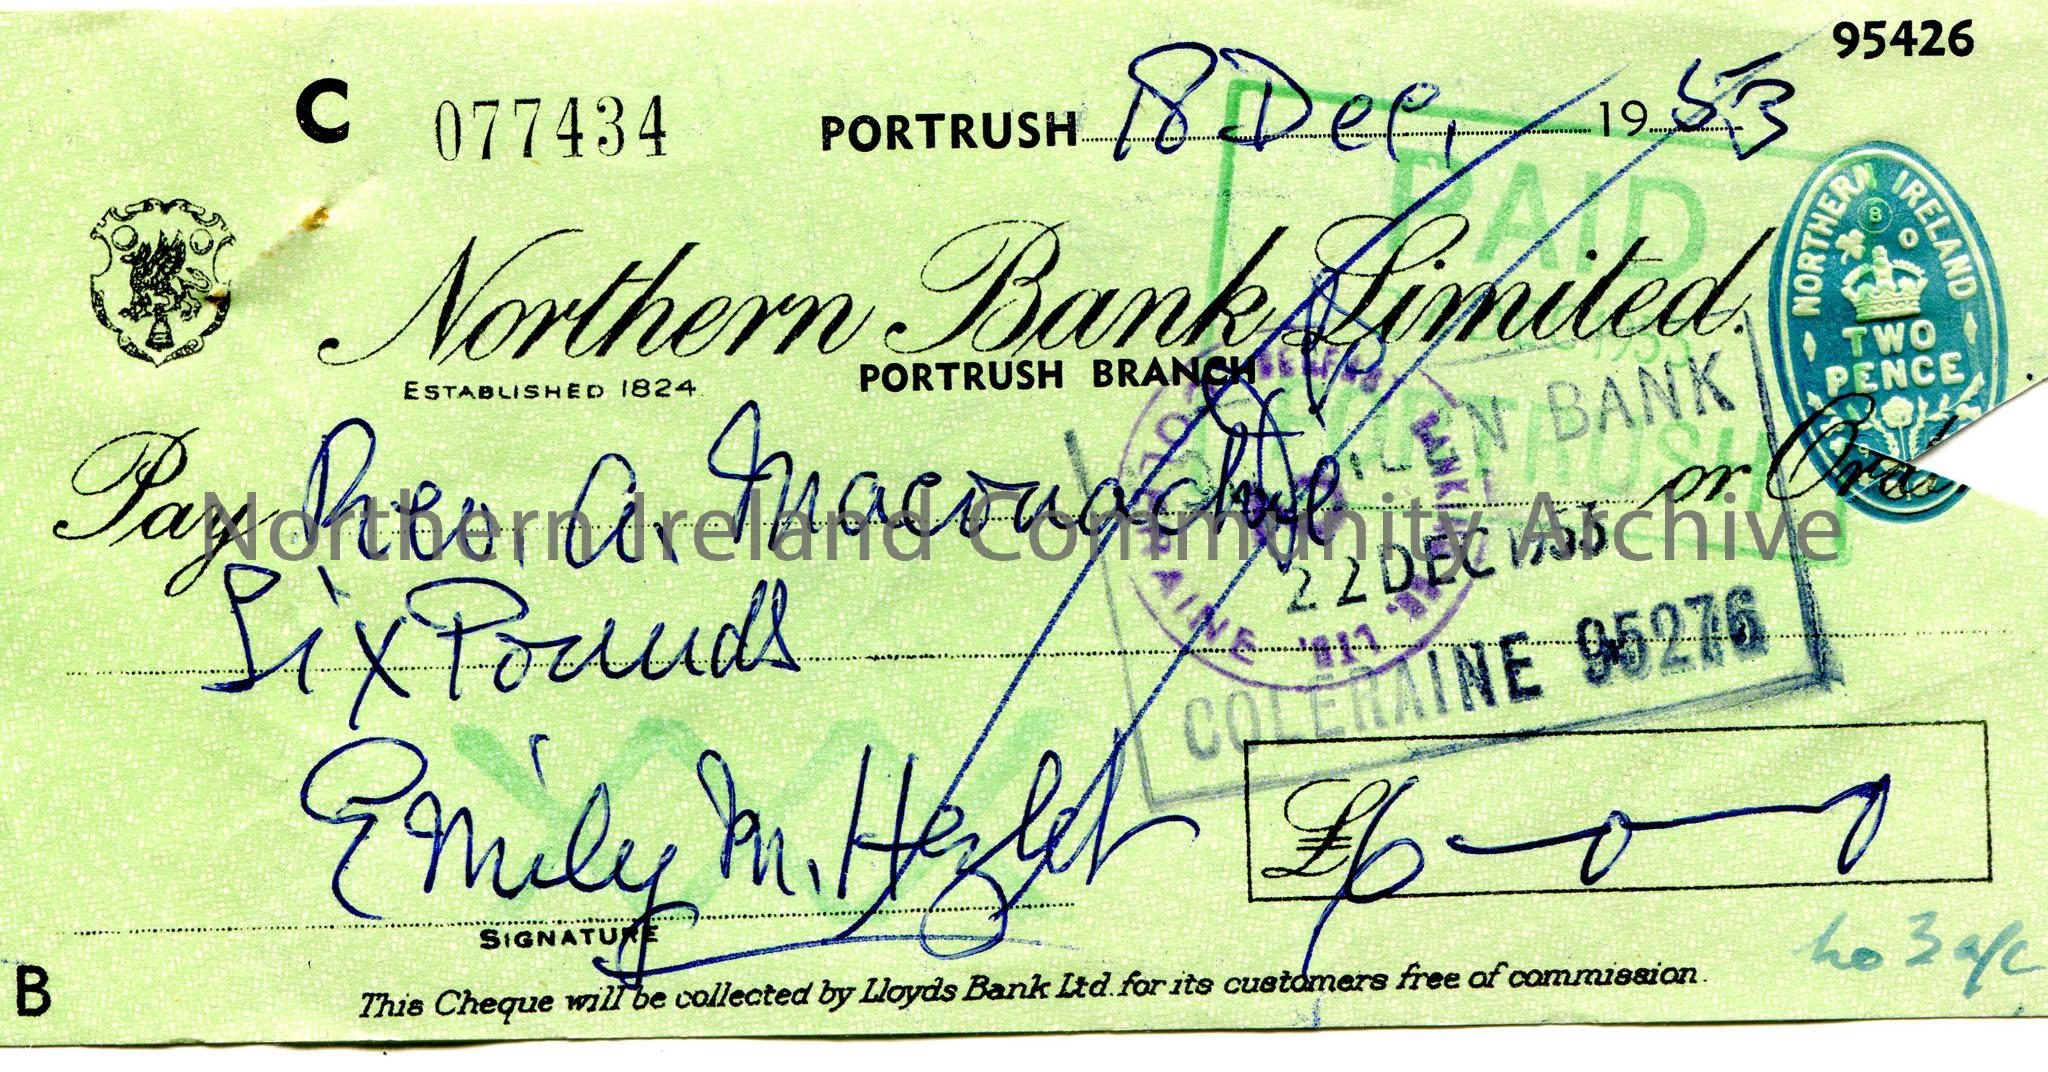 95426
C 077434 PORTRUSH 18 Dec, 1953
Northern Bank Limited.
ESTABLISHED 1824
PORTRUSH BRANCH
NORTHERN IRELAND
TWO
PENCE
PAID
PORTRUSH
Pay Rev. A. Macronachie or Order
Six Pounds
BANK
22 DEC 1953
COLERAINE 95276
BANKING
LTD.
Emily M. Hezlet
£6 - 0 - 0
SIGNATURE
no 3 a/c
B
This Cheque will be collected by Lloyds Bank Ltd. for its customers free of commission.
Northern Ireland Community Archive